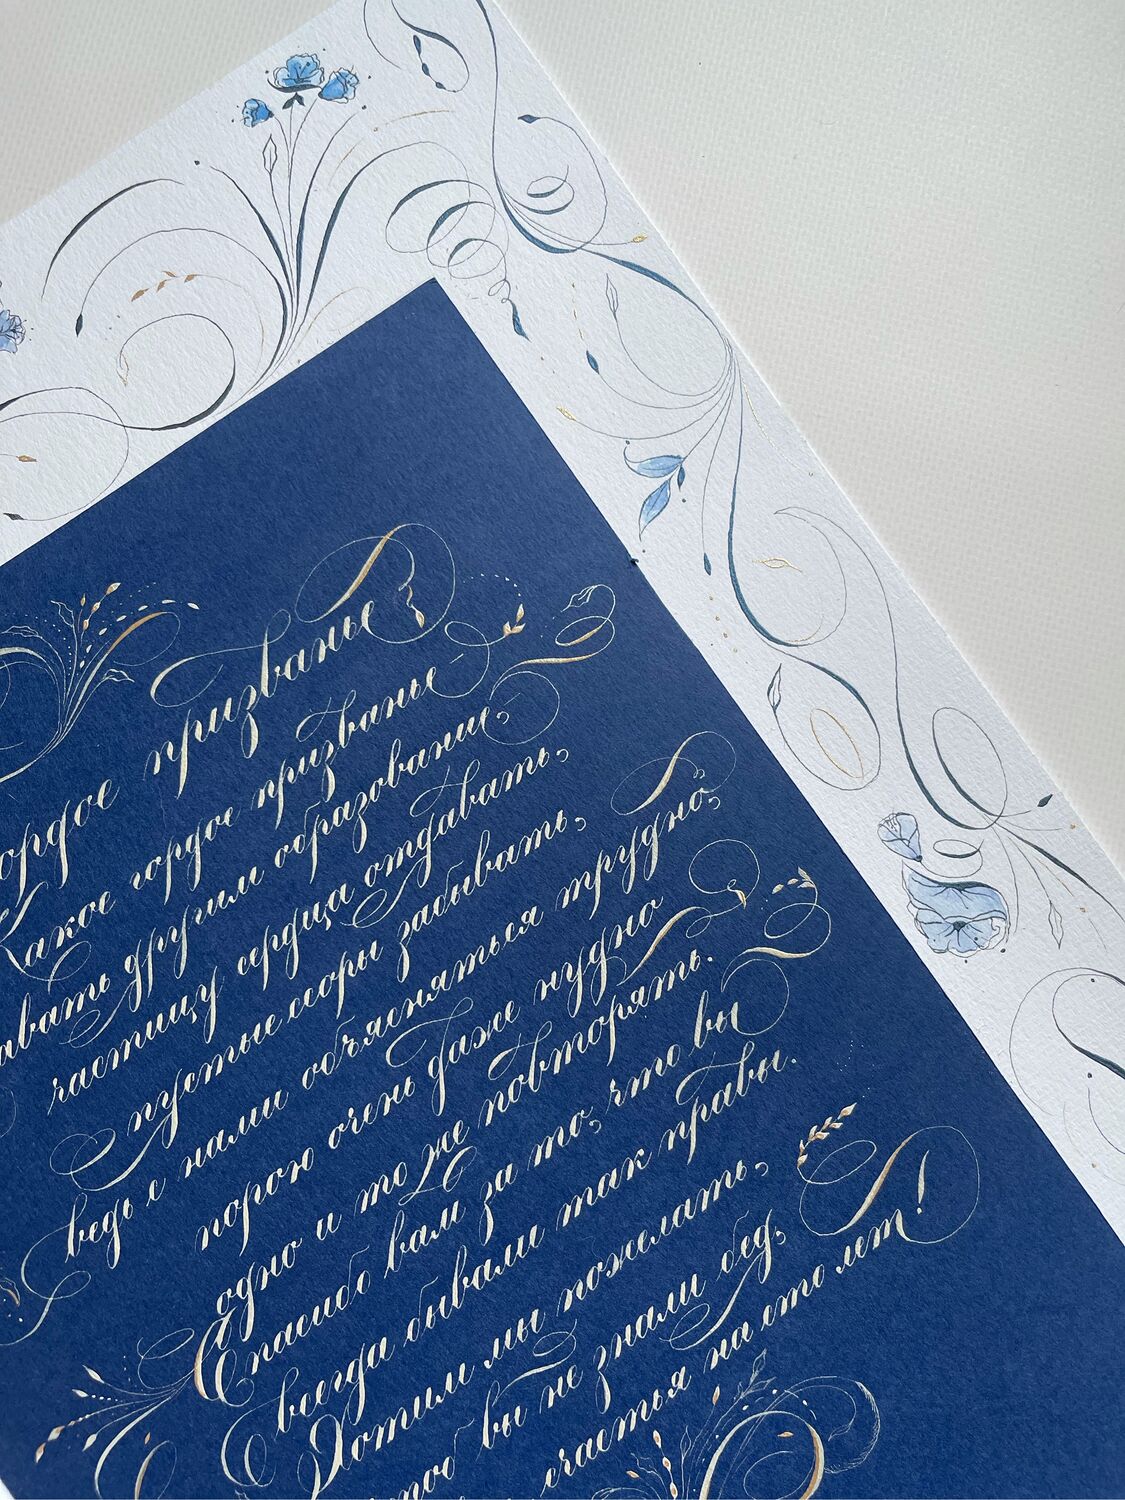 гордое призванье
Какое гордое призванье –
давать другим образование,
частицу сердца отдавать,
пустые ссоры забывать,
ведь с нами объясняться трудно,
порою очень даже нудно
одно и то же повторять.
Спасибо вам за то, что вы
всегда бывали так правы.
Хотим мы пожелать,
чтоб вы не знали бед,
счастья на сто лет!